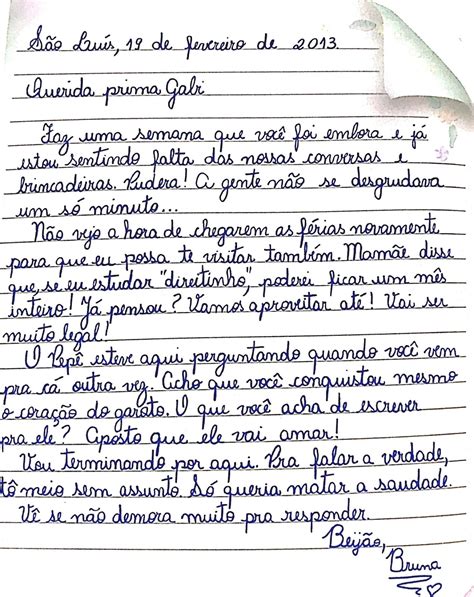 São Luís, 19 de fevereiro de 2013.
Querida prima Gabi
Faz uma semana que você foi embora e já
estou sentindo falta das nossas conversas e
brincadeiras. Pudera! A gente não se desgrudava
um só minuto...
Não vejo a hora de chegarem as férias novamente
para que eu possa te visitar também. Mamãe disse
que, se eu estudar "direitinho", poderei ficar um mês
inteiro! Já pensou? Vamos aproveitar até! Vai ser
muito legal!
O Pepê esteve aqui perguntando quando você vem
pra cá outra vez. Acho que você conquistou mesmo
o coração do garoto. O que você acha de escrever
pra ele? Aposto que ele vai amar!
Vou terminando por aqui. Pra falar a verdade,
tô meio sem assunto. Só queria matar a saudade.
Vê se não demora muito pra responder.
Beijão,
Bruna